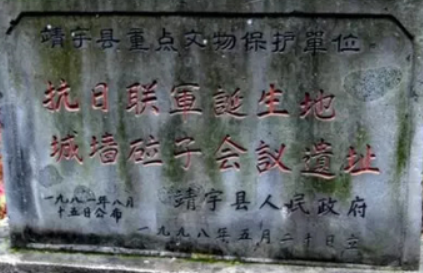 靖宇县重点文物保护單位
抗日联軍誕生地
城墙砬子会议遺址
一九八一年八月
十五日公布
靖宇县人民政府
一九九八年五月二十日立